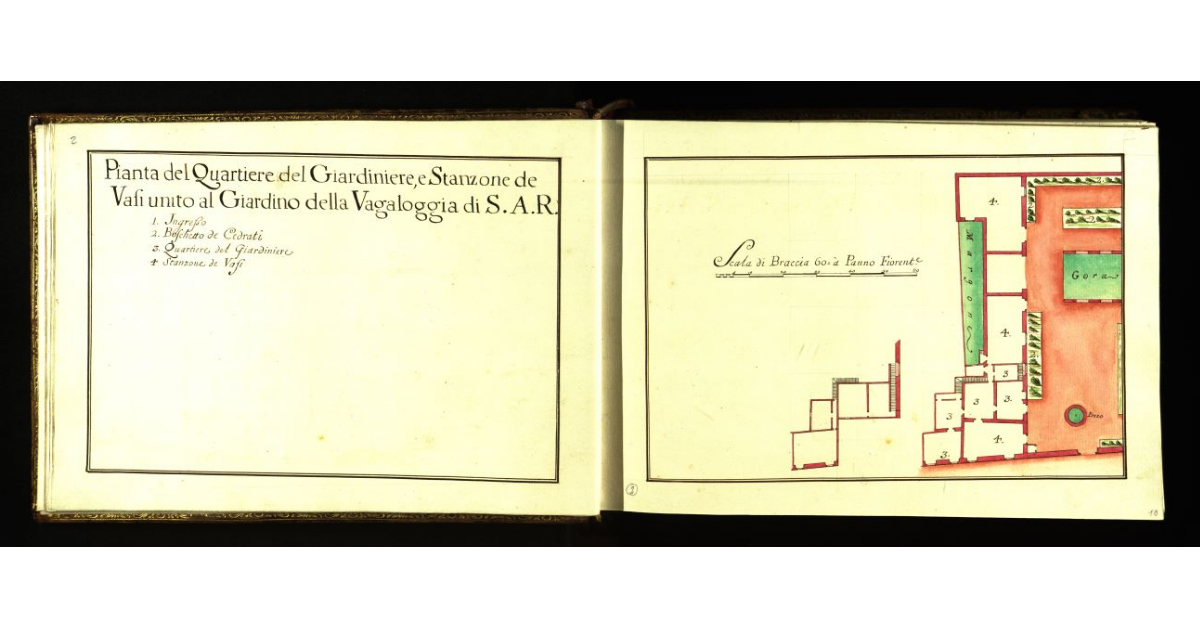 2
Pianta del Quartiere del Giardiniere, e Stanzone de
Vasi unito al Giardino della Vagaloggia di S. A. R.
1. Ingresso
2. Boschetto de Cedrati
3. Quartiere del Giardiniere
4 Stanzone de Vasi
Scala di Braccia 60 à Panno Fiorent.e
4.
2.
2.
Margone
Gora
4.
2.
3
3
3.
3
Pozo
4.
3.
2
18